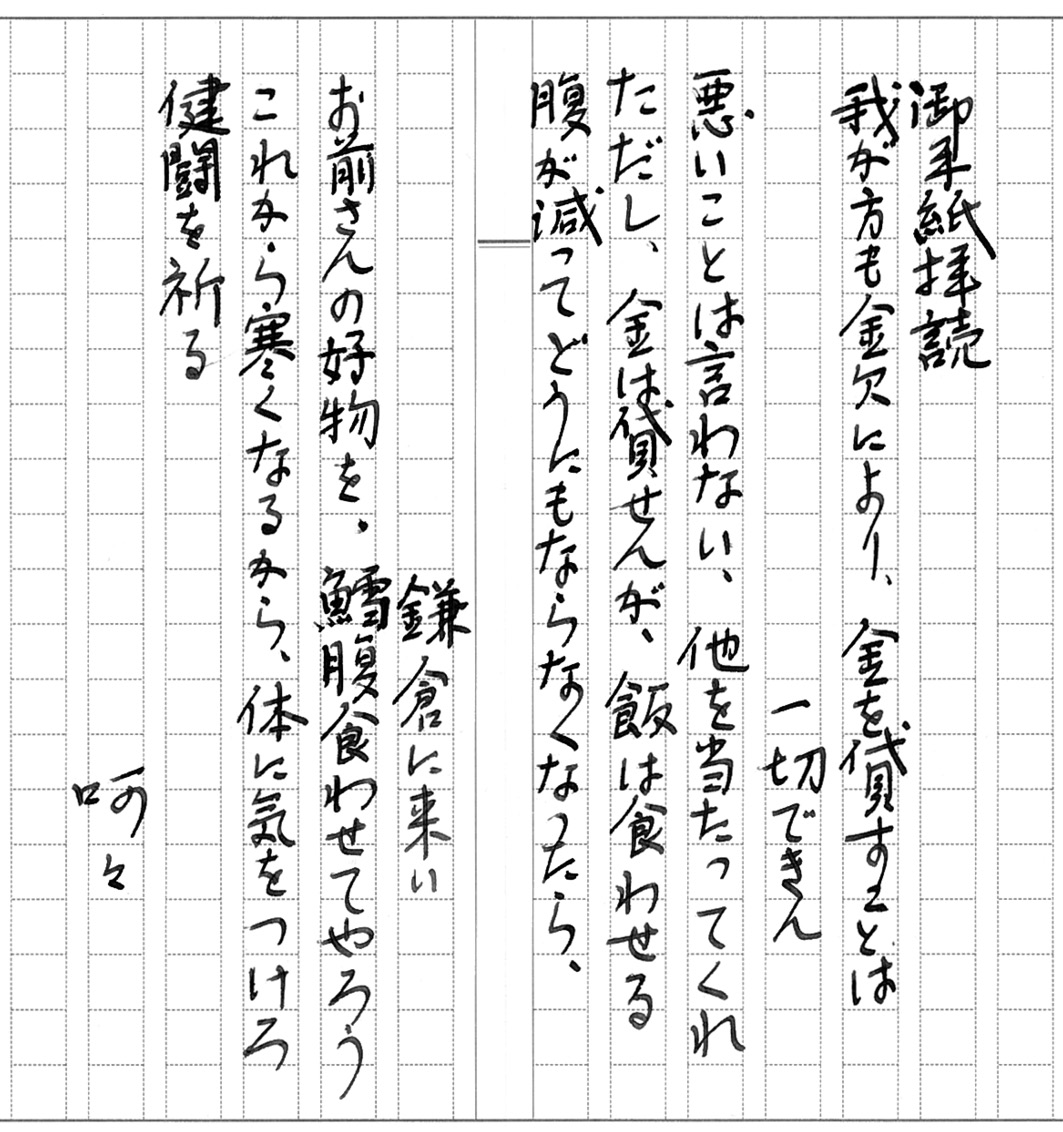 御手紙拝読
我が方も金欠により、金を貸すことは
一切できん
悪いことは言わない、他を当たってくれ
ただし、金は貸せんが、飯は食わせる
腹が減ってどうにもならなくなったら、
鎌倉に来い
お前さんの好物を。鱈腹食わせてやろう
これから寒くなるから、体に気をつけろ
健闘を祈る
呵々